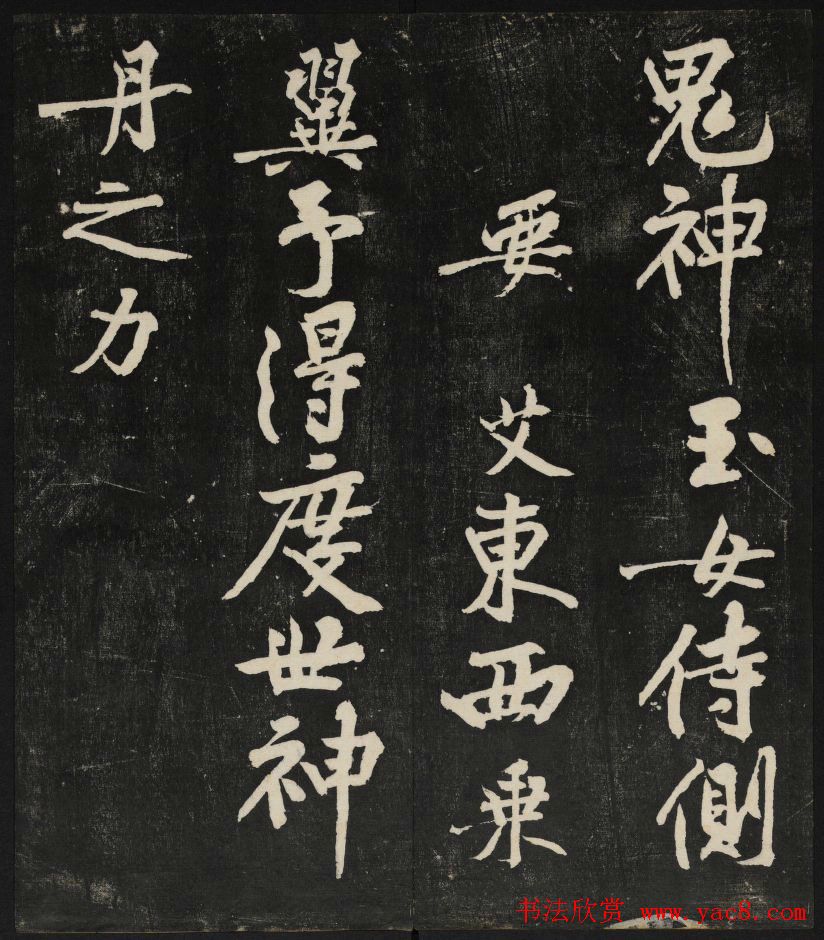 鬼神玉女侍側
要艾東西乘
翼予得度世神
丹之力
书法欣赏 www.yac8.com